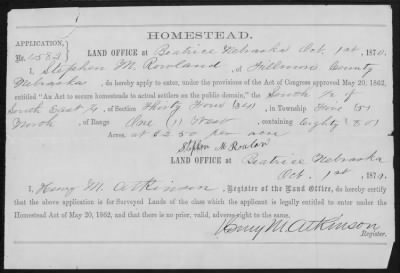 HOMESTEAD.
APPLICATION,
No. 4583
LAND OFFICE at Beatrice Nebraska Oct. 1st, 1870.
I, Stephen M. Rowland, of Fillmore County
Nebraska, do hereby apply to enter, under the provisions of the Act of Congress approved May 20, 1862,
entitled "An Act to secure homesteads to actual settlers on the public domain," the South ½ of
South East ¼ of Section Thirty Four (34), in Township Five (5)
North of Range One (1) West, containing Eighty (80)
Acres. at $2.50 per acre
Stephen M Roulon
LAND OFFICE at Beatrice Nebraska
Oct. 1st, 1870.
I, Henry M. Atkinson, Register of the Land Office, do hereby certify
that the above application is for Surveyed Lands of the class which the applicant is legally entitled to enter under the
Homestead Act of May 20, 1862, and that there is no prior, valid, adverse right to the same.
Henry M. Atkinson
Register.